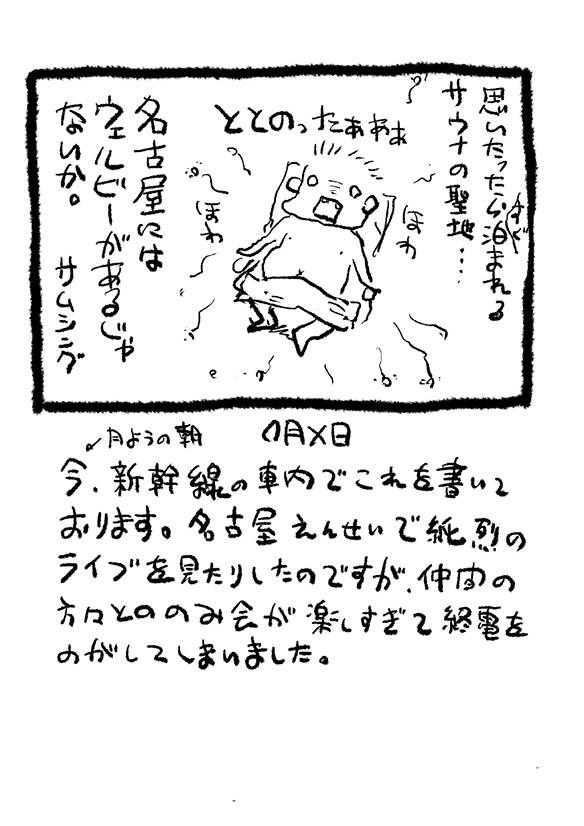 思いたったらすぐ泊まれる
サウナの聖地…
ととのったぁぁぁ
ほわ
ほわ
名古屋には
ウェルビーがあるじゃ
ないか。
サムシング
7月X日
月ようの朝
今、新幹線の車内でこれを書いて
おります。名古屋えんせいで純烈の
ライブを見たりしたのですが、仲間の
方々とののみ会が楽しすぎて終電を
のがしてしまいました。